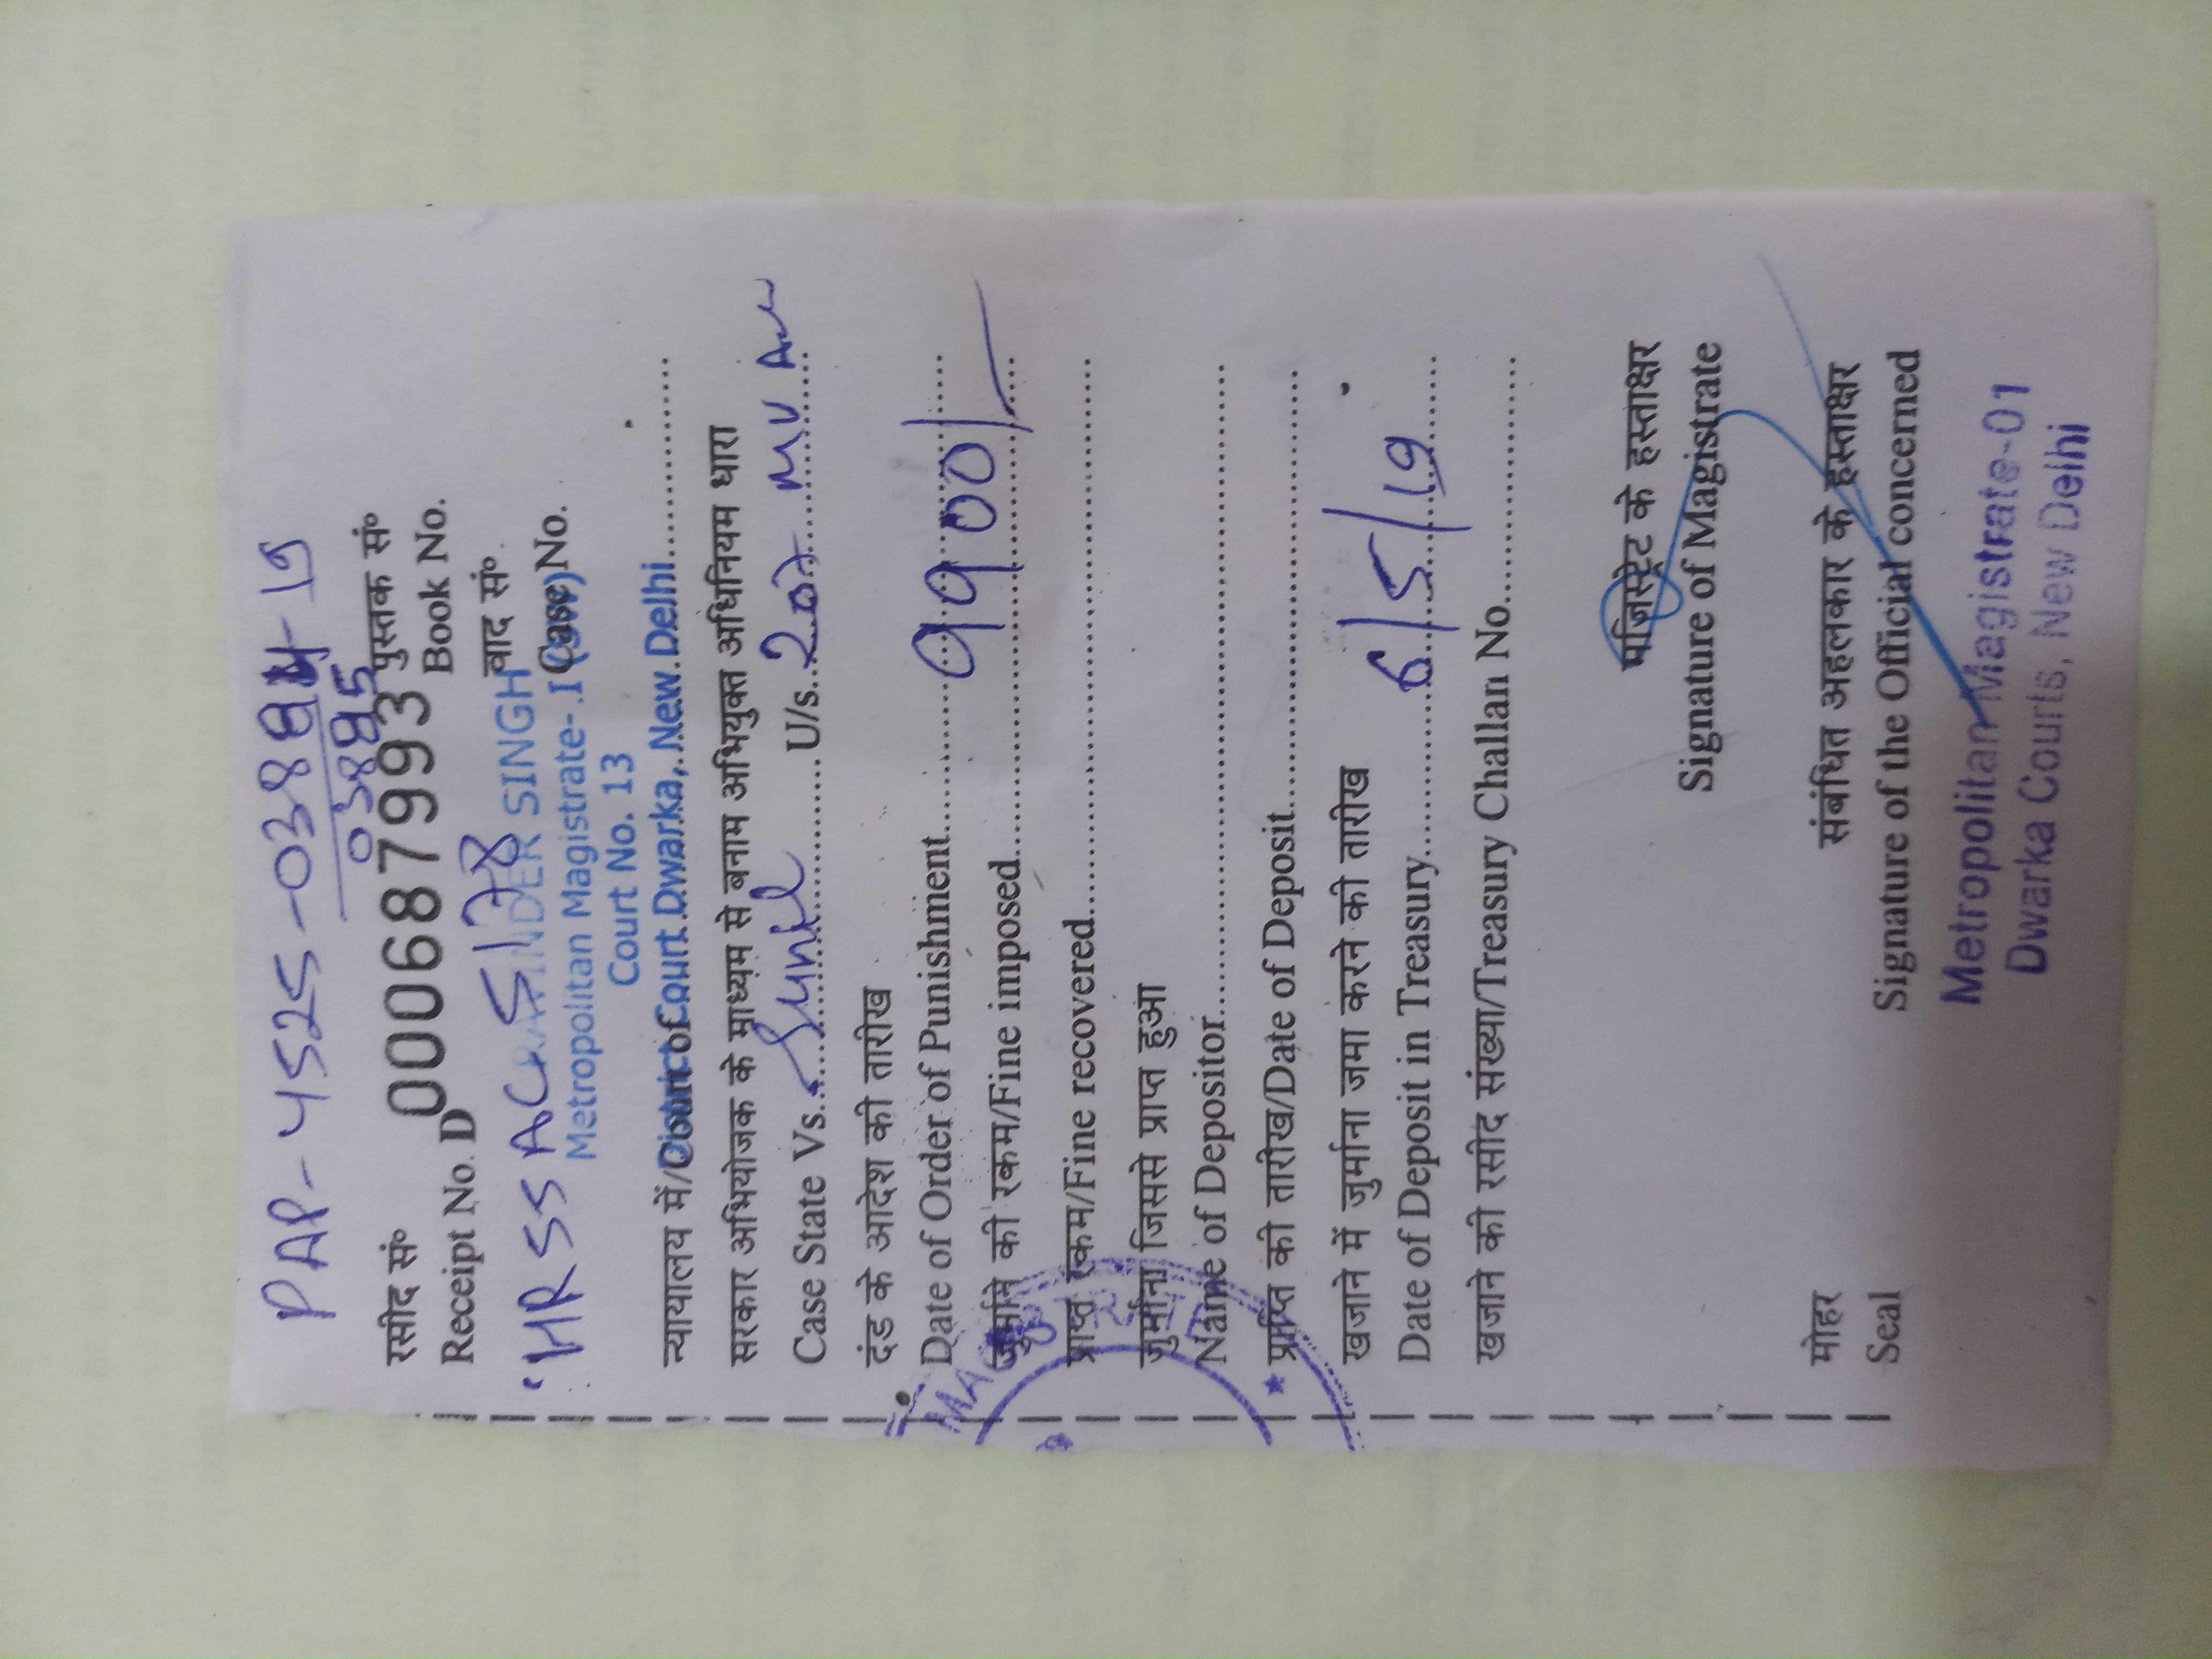 PAP-4525-03884-19
03885
रसीद सं० पुस्तक सं०
Receipt No. D 000687993 Book No.
वाद सं०
HR55AC5178
INDER SINGH Case No.
Metropolitan Magistrate-I
Court No. 13
न्यायालय में/Court of
District Court Dwarka, New Delhi
सरकार अभियोजक के माध्यम से बनाम अभियुक्त अधिनियम धारा
Case State Vs. Sunil U/s. 207 MV Act
दंड के आदेश की तारीख
Date of Order of Punishment
जुर्माने की रकम/Fine imposed 9900/-
प्राप्त रकम/Fine recovered
जुर्माना जिससे प्राप्त हुआ
Name of Depositor
प्राप्ति की तारीख/Date of Deposit
खजाने में जुर्माना जमा करने की तारीख
Date of Deposit in Treasury 6/5/19
खजाने की रसीद संख्या/Treasury Challan No.
मजिस्ट्रेट के हस्ताक्षर
Signature of Magistrate
मोहर संबंधित अहलकार के हस्ताक्षर
Seal Signature of the Official concerned
Metropolitan Magistrate-01
Dwarka Courts, New Delhi